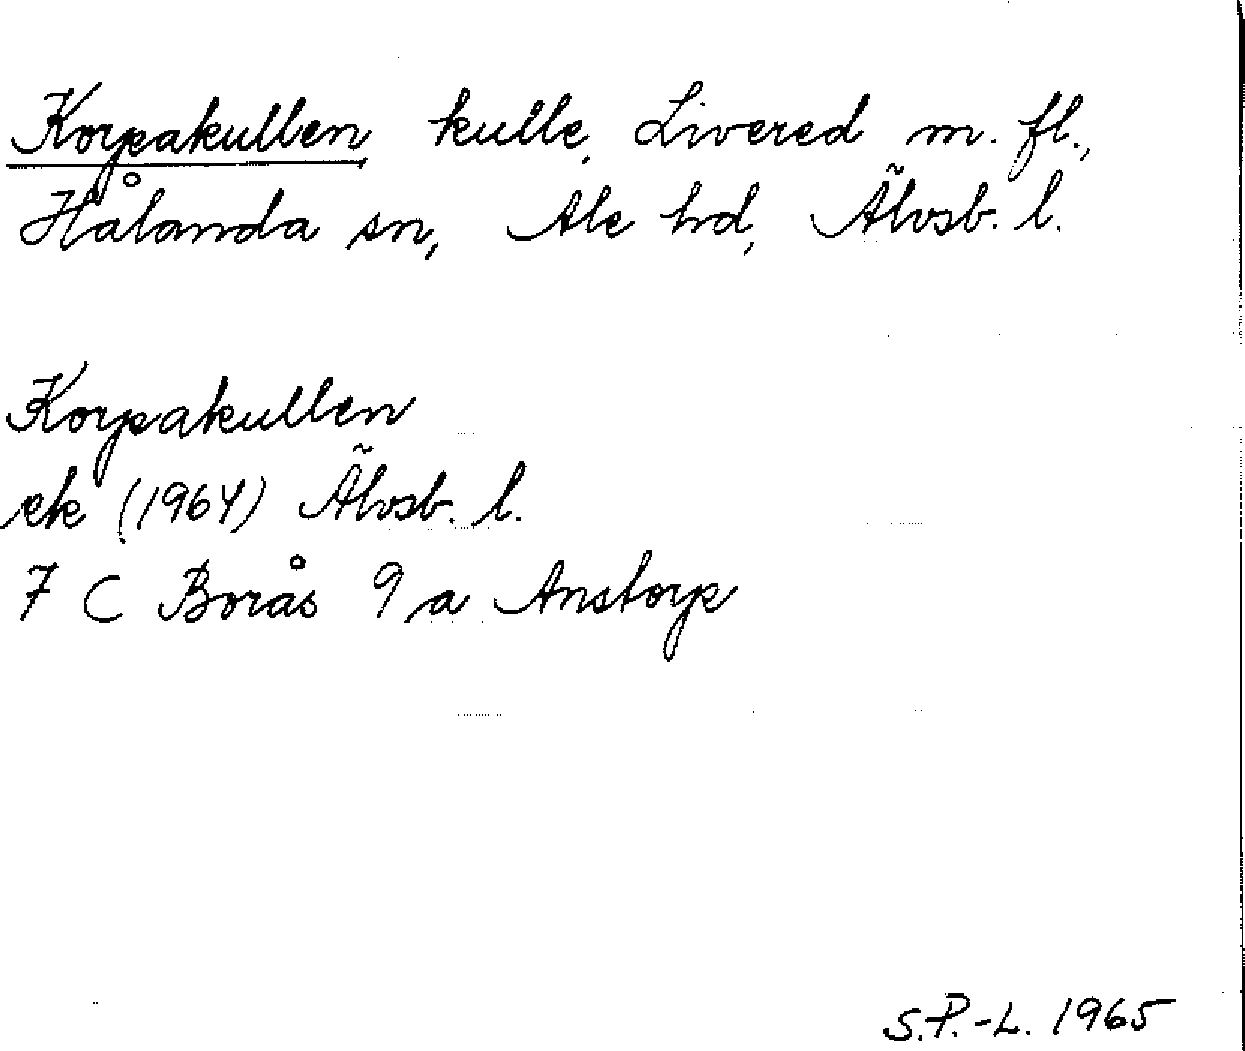 Korpakullen kulle, Livered m. fl.,
Hålanda sn, Ale hd, Älvsb. l.
Korpakullen
ek (1964) Älvsb. l.
7 C Borås 9 a Anstorp
S.P.-L. 1965